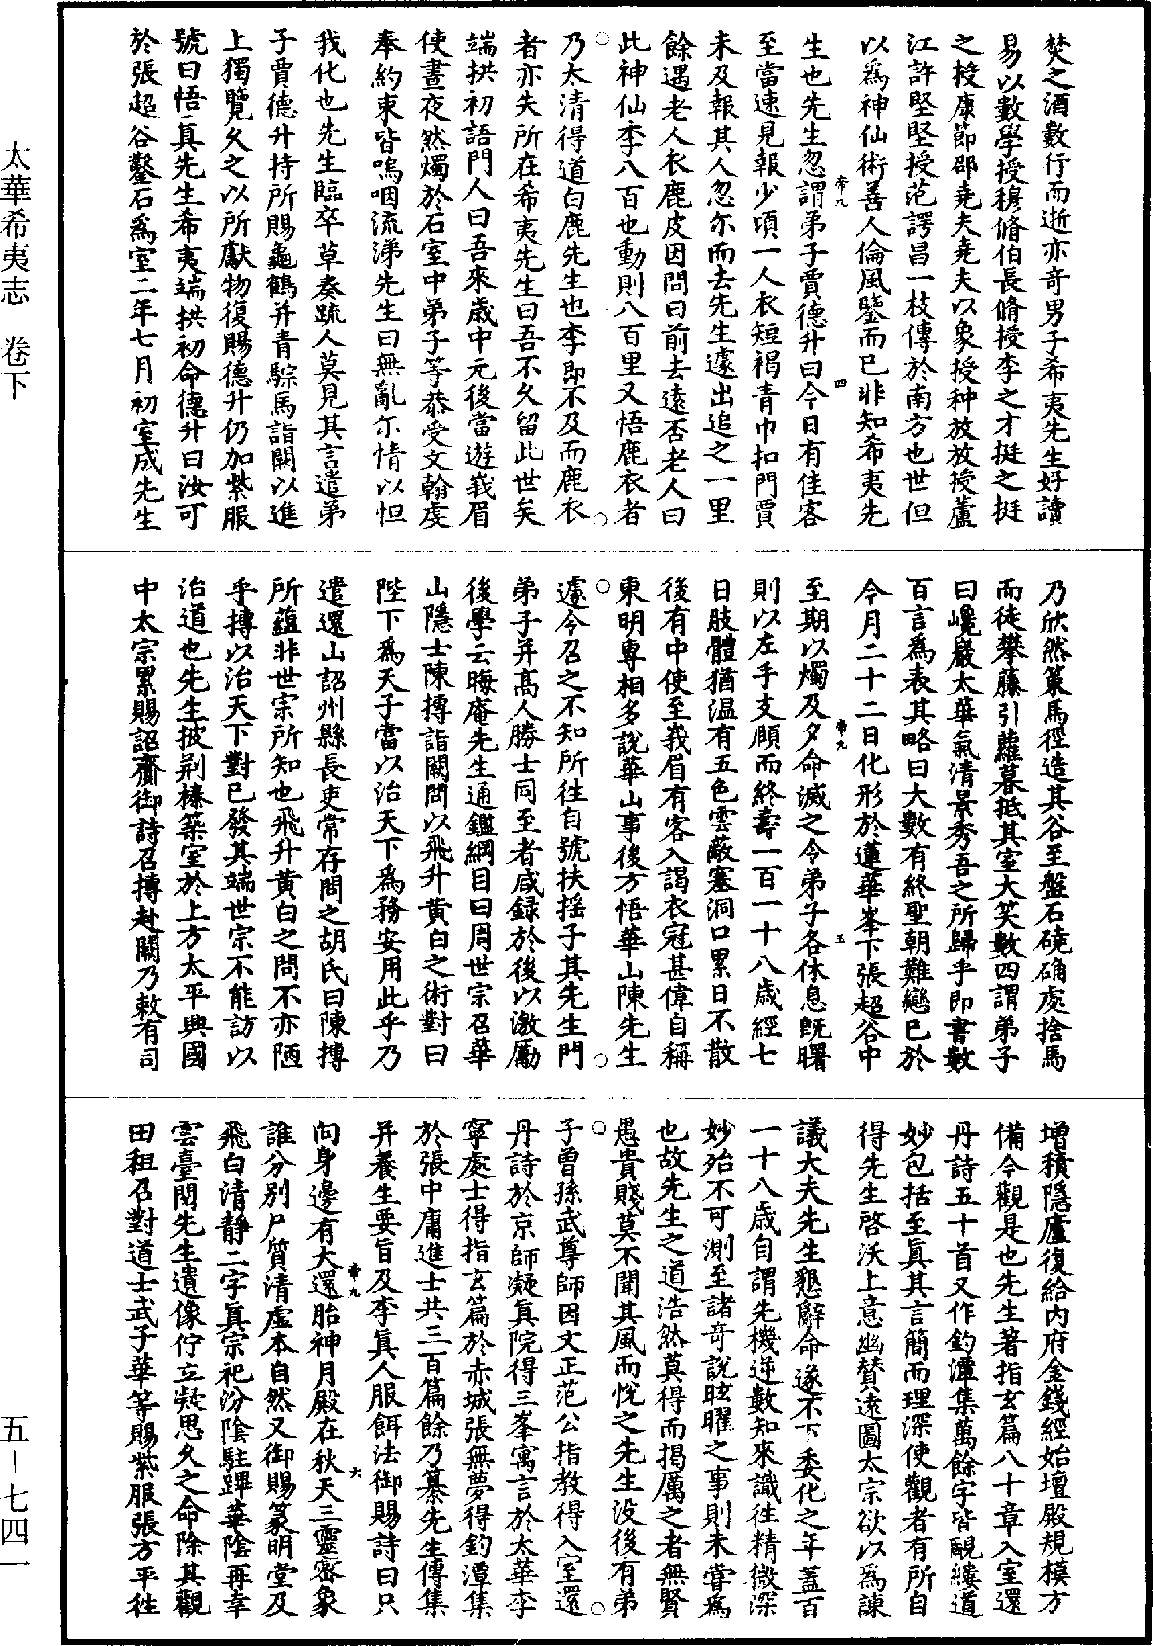 焚之酒數行而逝亦奇男子希夷先生好讀
易以數學授穆脩伯長脩授李之才挺之挺
之授康節邵堯夫堯夫以象授种放放授廬
江許堅堅授范諤昌一枝傳於南方也世但
以爲神仙術善人倫風鑒而已非知希夷先
生也先生忽謂弟子賈德升曰今日有佳客
至當速見報少頃一人衣短褐青巾扣門賈
未及報其人忽尔而去先生遽出追之一里
餘遇老人衣鹿皮因問曰前去遠否老人曰
此神仙李八百也動則八百里又悟鹿衣者
乃太清得道白鹿先生也李即不及而鹿衣
者亦失所在希夷先生曰吾不久留此世矣
端拱初語門人曰吾來歲中元後當遊峩眉
使晝夜然燭於石室中弟子等恭受文翰虔
奉約束皆嗚咽流涕先生曰無亂尔情以怛
我化也先生臨卒草奏疏人莫見其言遣弟
子賈德升持所賜龜鶴并青騌馬詣闕以進
上獨覽久之以所獻物復賜德升仍加紫服
號曰悟真先生希夷端拱初命德升曰汝可
於張超谷鑿石爲室二年七月初室成先生
帝九
四
乃欣然策馬徑造其谷至盤石磽确處捨馬
而徒攀藤引蘿暮抵其室大笑數四謂弟子
曰巉巖太華氣清景秀吾之所歸乎即書數
百言爲表其略曰大數有終聖朝難戀已於
今月二十二日化形於蓮華峯下張超谷中
至期以燭及夕命滅之令弟子各休息旣曙
則以左手支頤而終壽一百一十八歲經七
日肢體猶溫有五色雲蔽塞洞口累日不散
後有中使至峩眉有客入謁衣冠甚偉自稱
東明專相多說華山事後方悟華山陳先生
遽令召之不知所往自號扶搖子其先生門
弟子并高人勝士同至者咸録於後以激勵
後學云晦庵先生通鑑綱目曰周世宗召華
山隱士陳摶詣闕問以飛升黃白之術對曰
陛下爲天子當以治天下爲務安用此乎乃
遣還山詔州縣長吏常存問之胡氏曰陳摶
所蘊非世宗所知也飛升黃白之問不亦陋
乎摶以治天下對已發其端世宗不能訪以
治道也先生披荆榛築室於上方太平興國
中太宗累賜詔齎御詩召摶赴闕乃敕有司
帝九
五
增積隱廬復給内府金錢經始壇殿規模方
備今觀是也先生著指玄篇八十章入室還
丹詩五十首又作釣潭集萬餘字皆覼縷道
妙包括至眞其言簡而理深使觀者有所自
得先生啓沃上意幽賛遠圖太宗欲以爲諫
議大夫先生懇辭命遂不下委化之年蓋百
一十八歲自謂先機逆數知來識往精微深
妙殆不可測至諸奇說眩曜之事則未甞爲
也故先生之道浩然莫得而揭厲之者無賢
愚貴賤莫不聞其風而悅之先生没後有弟
子曾孫武尊師因文正范公指教得入室還
丹詩於京師凝眞院得三峯寓言於太華李
寧處士得指玄篇於赤城張無夢得釣潭集
於張中庸進士共三百篇餘乃纂先生傳集
并養生要旨及李眞人服餌法御賜詩曰只
向身邊有大還胎神月殿在秋天三靈密象
誰分別尸質清虛本自然又御賜篆明堂及
飛白清靜二字眞宗祀汾陰駐蹕華陰再幸
雲臺閲先生遺像佇立凝思久之命除其觀
田租召對道士武子華等賜紫服張方平往
帝九
六
太華希夷志　卷下
五－七四一